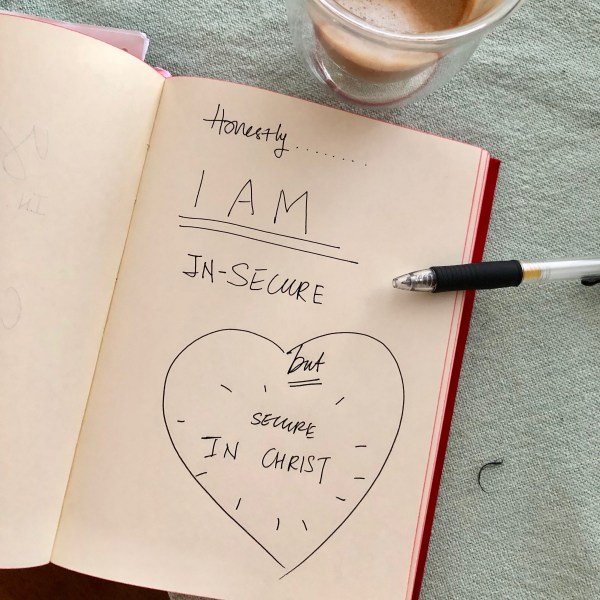 Honestly........
I AM
IN-SECURE
but
SECURE
IN CHRIST